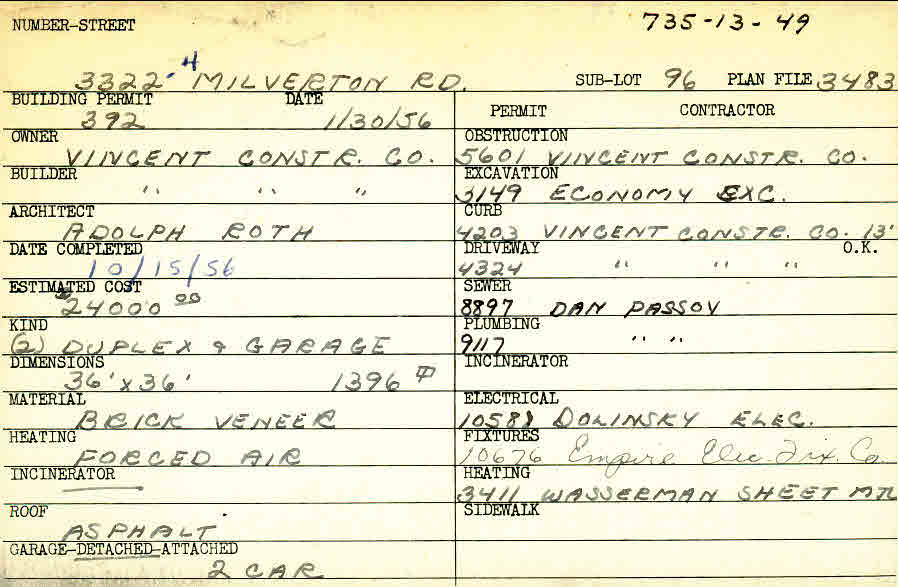 735-13-49
NUMBER-STREET
3322-4 MILVERTON RD.
SUB-LOT 96 PLAN FILE 3483
BUILDING PERMIT DATE
392 1/30/56
OWNER
VINCENT CONSTR. CO.
BUILDER
" " "
ARCHITECT
ADOLPH ROTH
DATE COMPLETED
10/15/56
ESTIMATED COST
$24000 00
KIND
(2) DUPLEX & GARAGE
DIMENSIONS
36' x 36' 1396
MATERIAL
BRICK VENEER
HEATING
FORCED AIR
INCINERATOR
ROOF
ASPHALT
GARAGE-DETACHED-ATTACHED
2 CAR
PERMIT CONTRACTOR
OBSTRUCTION
5601 VINCENT CONSTR. CO.
EXCAVATION
3149 ECONOMY EXC.
CURB
4203 VINCENT CONSTR. CO. 13'
DRIVEWAY O.K.
4324 " " "
SEWER
8897 DAN PASSOV
PLUMBING
9117 " "
INCINERATOR
ELECTRICAL
10581 DOLINSKY ELEC.
FIXTURES
10676 Empire Elec. Fix. Co
HEATING
3411 WASSERMAN SHEET MTL
SIDEWALK